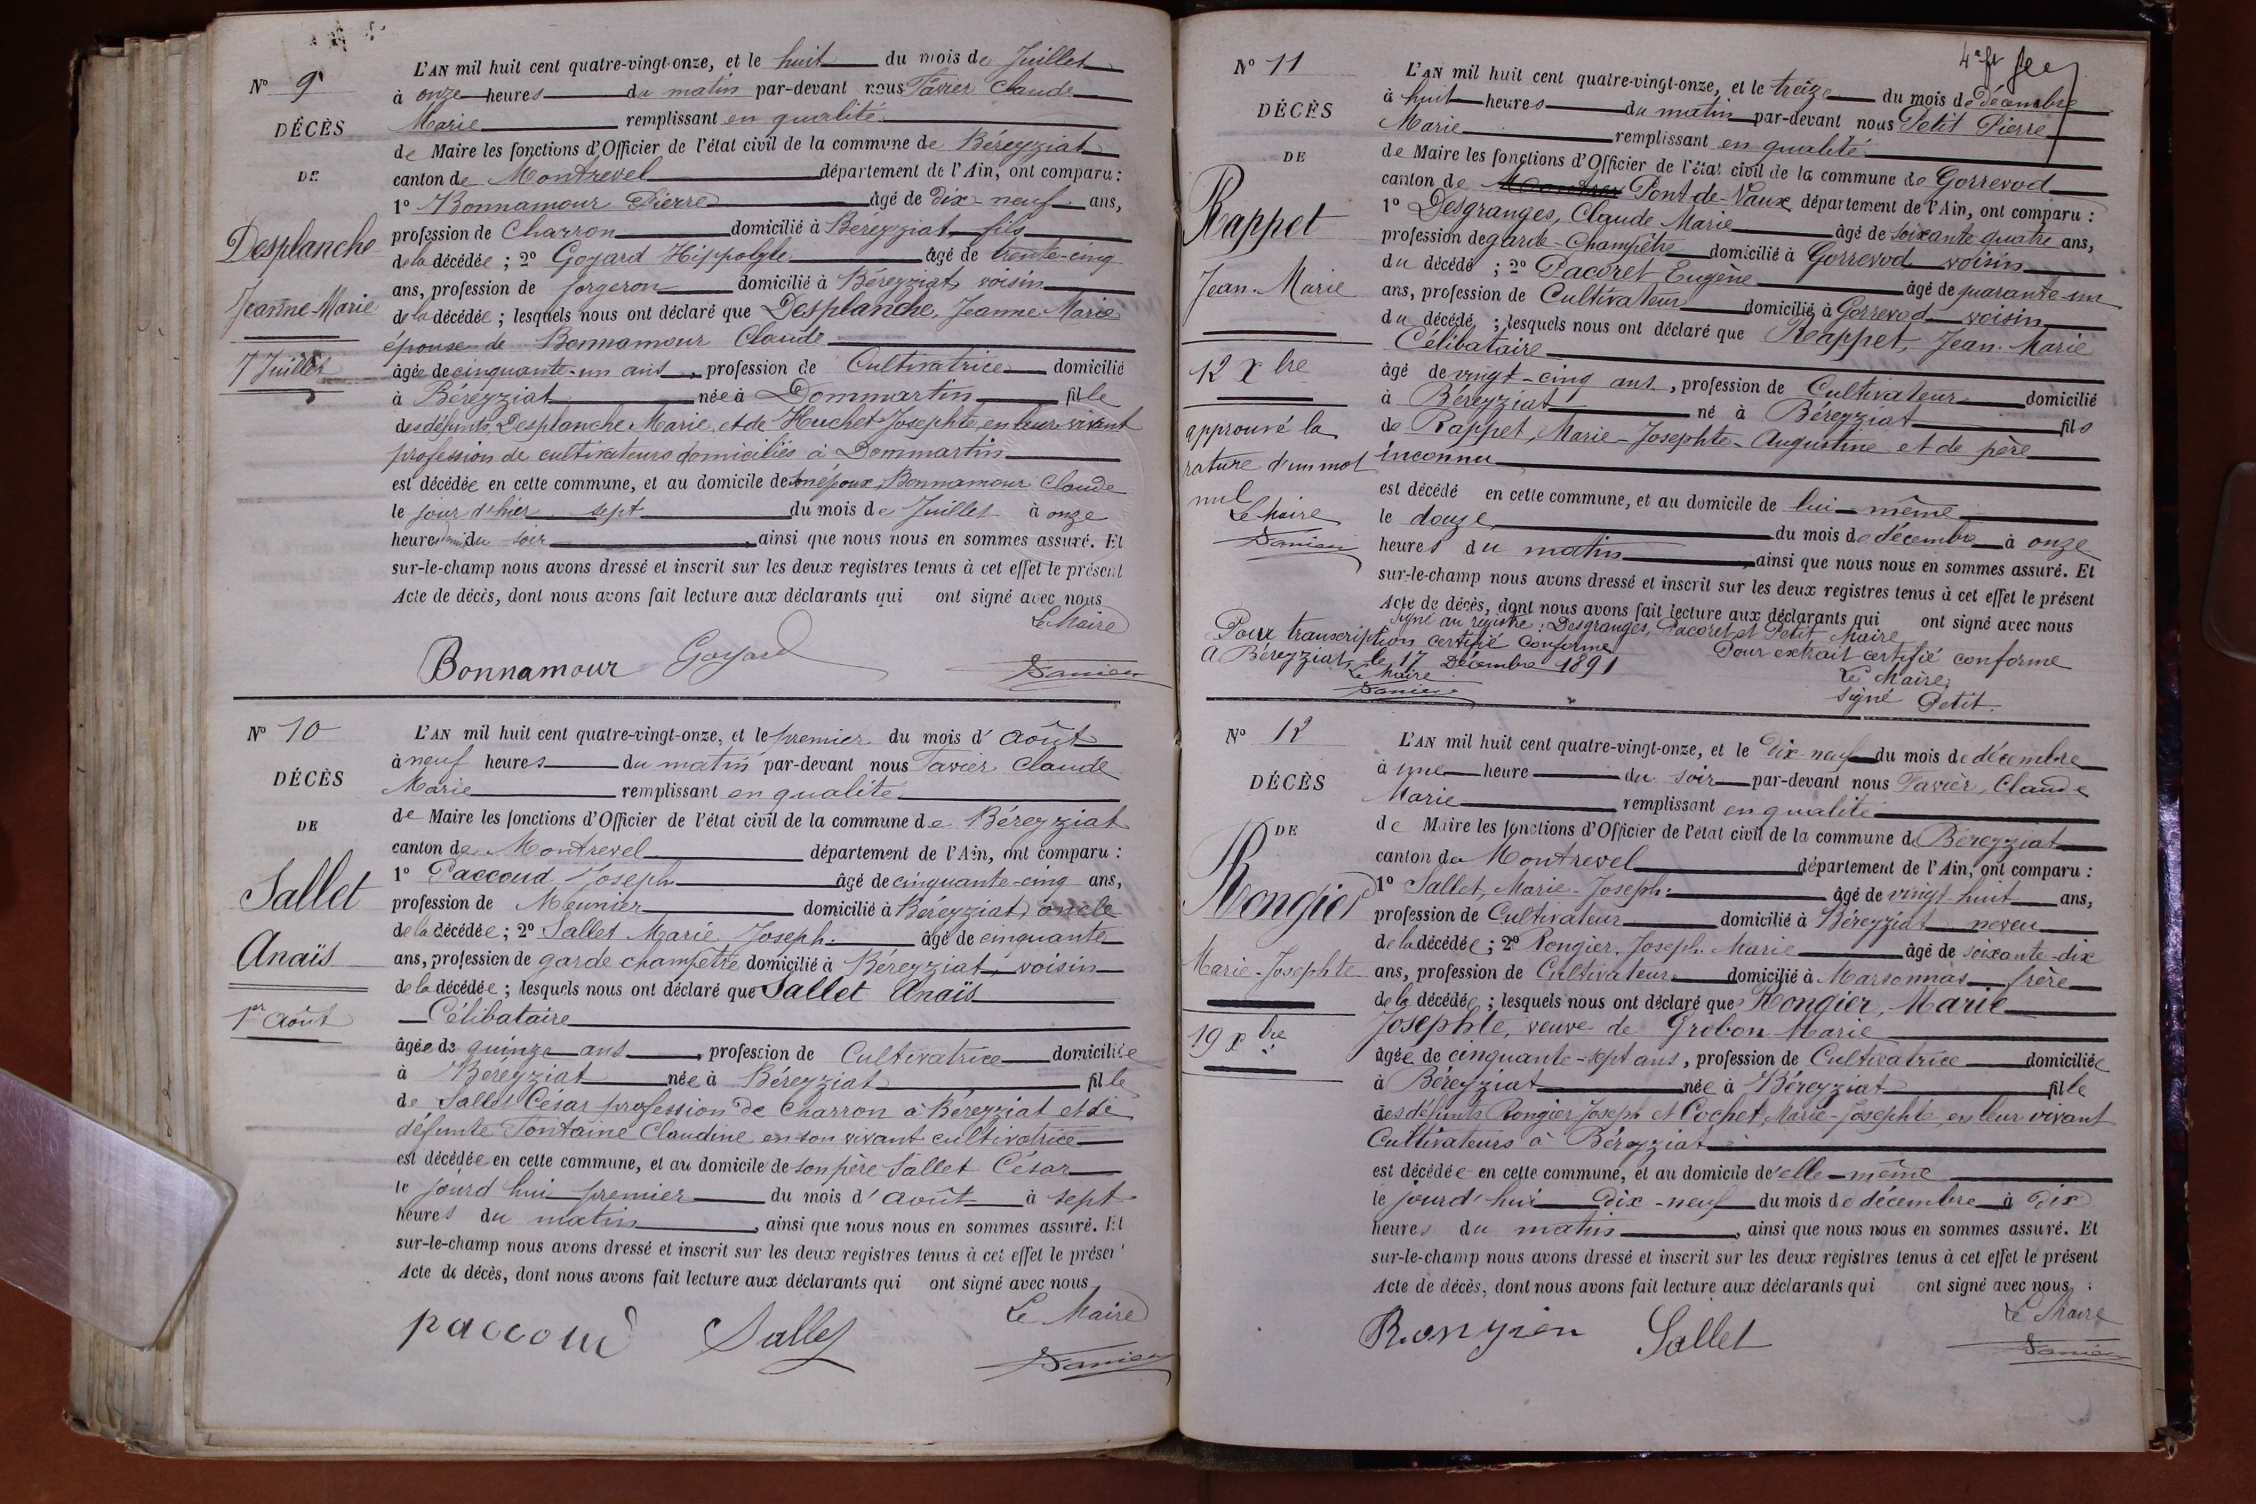 N° 9
DÉCÈS
DE
Desplanche
Jeanne-Marie
7 Juillet
L'AN mil huit cent quatre-vingt-onze, et le huit du mois de Juillet
à onze heures du matin par-devant nous Tavier Claude
Marie remplissant en qualité
de Maire les fonctions d'Officier de l'état civil de la commune de Béreyziat
canton de Montrevel département de l'Ain, ont comparu :
1° Bonnamour Pierre âgé de dix-neuf ans,
profession de Charron domicilié à Béreyziat fils
de la décédée ; 2° Goyard Hippolyte âgé de trente-cinq
ans, profession de forgeron domicilié à Béreyziat voisin
de la décédée ; lesquels nous ont déclaré que Desplanche, Jeanne Marie
épouse de Bonnamour Claude
âgée de cinquante-un ans, profession de Cultivatrice domicilié
à Béreyziat née à Dommartin fille
des défunts Desplanche Marie, et de Huchet Josephte, en leur vivant
profession de cultivateurs domiciliés à Dommartin
est décédée en cette commune, et au domicile de son époux Bonnamour Claude
le jour d'hier sept du mois de Juillet à onze
heures du soir, ainsi que nous nous en sommes assuré. Et
sur-le-champ nous avons dressé et inscrit sur les deux registres tenus à cet effet le présent
Acte de décès, dont nous avons fait lecture aux déclarants qui ont signé avec nous
Le Maire
Bonnamour Goyard Tavier
N° 10
DÉCÈS
DE
Sallet
Anaïs
1er Août
L'AN mil huit cent quatre-vingt-onze, et le premier du mois d'Août
à neuf heures du matin par-devant nous Tavier Claude
Marie remplissant en qualité
de Maire les fonctions d'Officier de l'état civil de la commune de Béreyziat
canton de Montrevel département de l'Ain, ont comparu :
1° Paccoud Joseph âgé de cinquante-cinq ans,
profession de Meunier domicilié à Béreyziat, oncle
de la décédée ; 2° Sallet Marie Joseph âgé de cinquante
ans, profession de garde champêtre domicilié à Béreyziat, voisin
de la décédée ; lesquels nous ont déclaré que Sallet Anaïs
Célibataire
âgée de quinze ans, profession de Cultivatrice domiciliée
à Béreyziat née à Béreyziat fille
de Sallet César profession de Charron à Béreyziat et de
défunte Fontaine Claudine en son vivant cultivatrice
est décédée en cette commune, et au domicile de son père Sallet César
le jourd'hui premier du mois d'Août à sept
heures du matin, ainsi que nous nous en sommes assuré. Et
sur-le-champ nous avons dressé et inscrit sur les deux registres tenus à cet effet le présent
Acte de décès, dont nous avons fait lecture aux déclarants qui ont signé avec nous
Le Maire
paccoud Sallet Tavier
N° 11
DÉCÈS
DE
Rappet
Jean-Marie
12 Xbre
approuvé la
rature d'un mot
nul
Le Maire
Tavier
L'AN mil huit cent quatre-vingt-onze, et le treize du mois de décembre
à huit heures du matin par-devant nous Petit Pierre
Marie remplissant en qualité
de Maire les fonctions d'Officier de l'état civil de la commune de Gorrevod
canton de Pont-de-Vaux, département de l'Ain, ont comparu :
1° Desgranges, Claude Marie âgé de soixante quatre ans,
profession de garde-Champêtre domicilié à Gorrevod voisin
du décédé ; 2° Pacoret Eugène âgé de quarante-un
ans, profession de Cultivateur domicilié à Gorrevod voisin
du décédé ; lesquels nous ont déclaré que Rappet, Jean-Marie
Célibataire
âgé de vingt-cinq ans, profession de Cultivateur domicilié
à Béreyziat né à Béreyziat fils
de Rappet, Marie-Josephte-Augustine et de père
inconnu
est décédé en cette commune, et au domicile de lui-même
le douze du mois de décembre à onze
heures du matin, ainsi que nous nous en sommes assuré. Et
sur-le-champ nous avons dressé et inscrit sur les deux registres tenus à cet effet le présent
Acte de décès, dont nous avons fait lecture aux déclarants qui ont signé avec nous
Signé au registre : Desgranges, Pacoret et Petit Maire
Pour transcription certifié conforme
Pour extrait certifié conforme
A Béreyziat, le 17 Décembre 1891
Le Maire Le Maire
Tavier signé Petit.
N° 12
DÉCÈS
DE
Rongier
Marie-Josephte
19 Xbre
L'AN mil huit cent quatre-vingt-onze, et le dix-neuf du mois de décembre
à une heure du soir par-devant nous Tavier, Claude
Marie remplissant en qualité
de Maire les fonctions d'Officier de l'état civil de la commune de Béreyziat
canton de Montrevel département de l'Ain, ont comparu :
1° Sallet, Marie-Joseph âgé de vingt-huit ans,
profession de Cultivateur domicilié à Béreyziat neveu
de la décédée ; 2° Rongier, Joseph Marie âgé de soixante-dix
ans, profession de Cultivateur domicilié à Marsonnas frère
de la décédée ; lesquels nous ont déclaré que Rongier, Marie
Josephte, veuve de Grobon Marie
âgée de cinquante-sept ans, profession de Cultivatrice domiciliée
à Béreyziat née à Béreyziat fille
des défunts Rongier Joseph et Cochet, Marie-Josephte, en leur vivant
Cultivateurs à Béreyziat
est décédée en cette commune, et au domicile de elle-même
le jourd'hui dix-neuf du mois de décembre à dix
heures du matin, ainsi que nous nous en sommes assuré. Et
sur-le-champ nous avons dressé et inscrit sur les deux registres tenus à cet effet le présent
Acte de décès, dont nous avons fait lecture aux déclarants qui ont signé avec nous :
Le Maire
Rongier Sallet Tavier